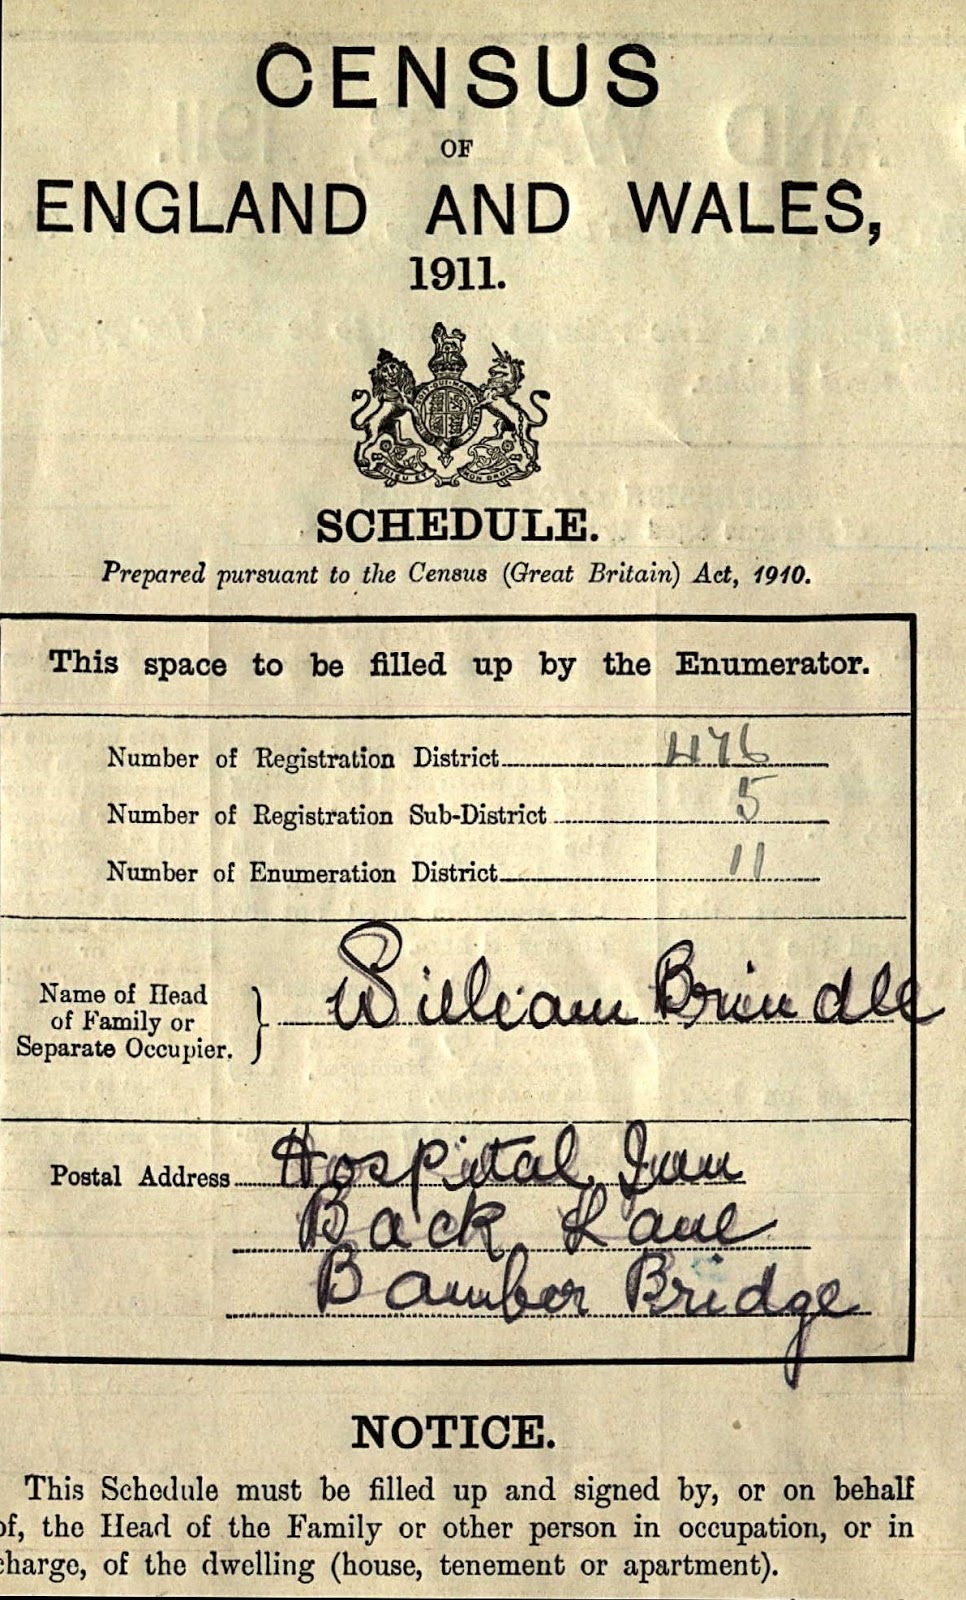 CENSUS
OF
ENGLAND AND WALES,
1911.
SCHEDULE.
Prepared pursuant to the Census (Great Britain) Act, 1910.
This space to be filled up by the Enumerator.
Number of Registration District 476
Number of Registration Sub-District 5
Number of Enumeration District 11
Name of Head
of Family or
Separate Occupier. } William Brindle
Postal Address Hospital Inn
Back Lane
Bamber Bridge
NOTICE.
This Schedule must be filled up and signed by, or on behalf
of, the Head of the Family or other person in occupation, or in
charge, of the dwelling (house, tenement or apartment).